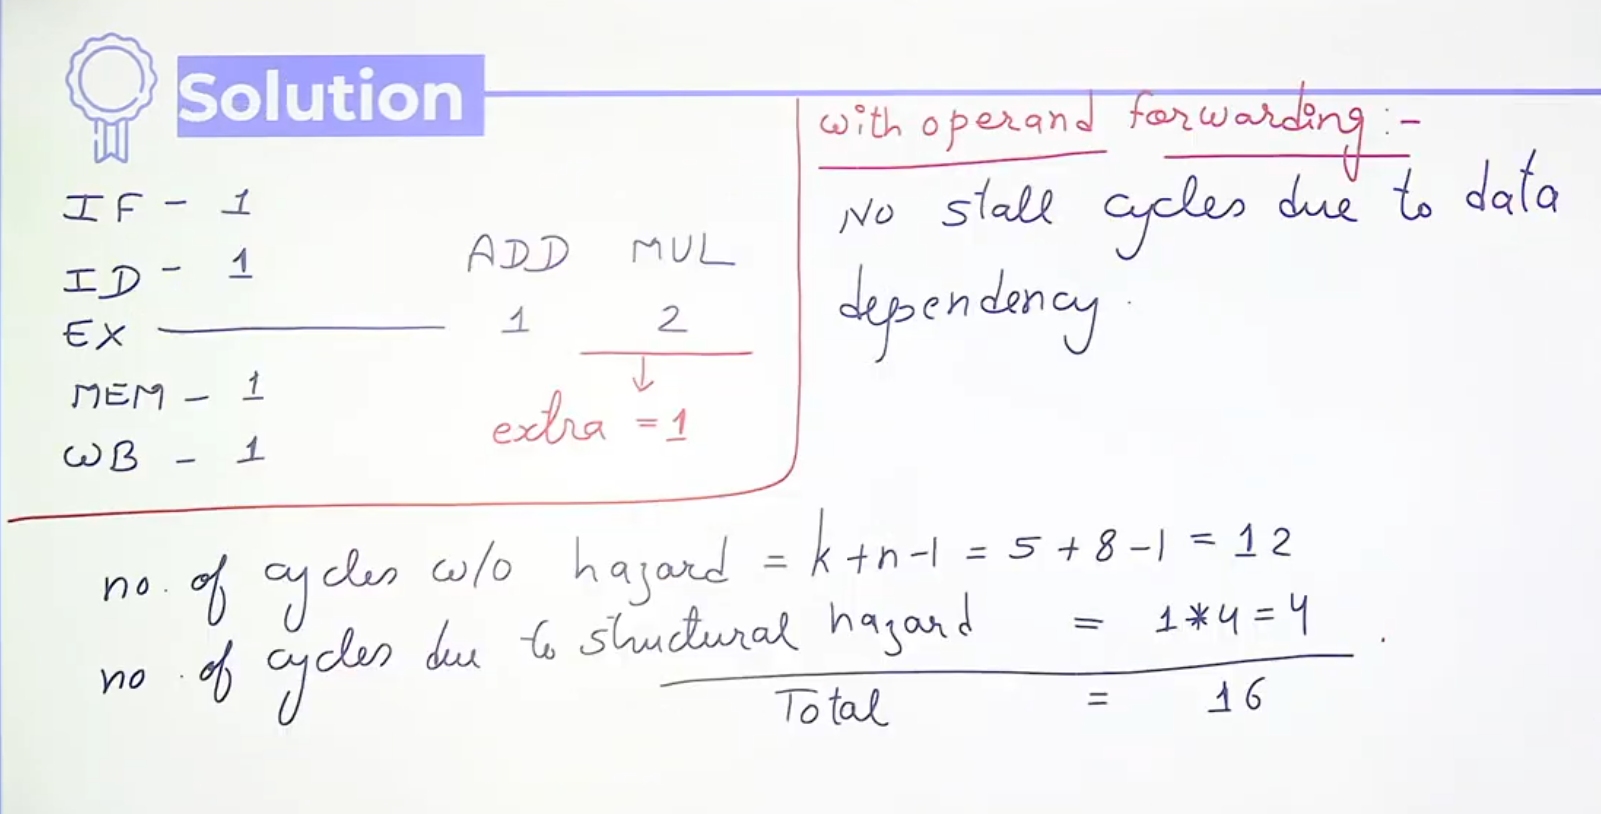 Solution
IF - 1
ID - 1
EX
MEM - 1
WB - 1
ADD MUL
1 2
extra = 1
with operand forwarding :-
No stall cycles due to data
dependency.
no. of cycles w/o hazard = k+n-1 = 5+8-1 = 12
no. of cycles due to structural hazard = 1*4 = 4
Total = 16